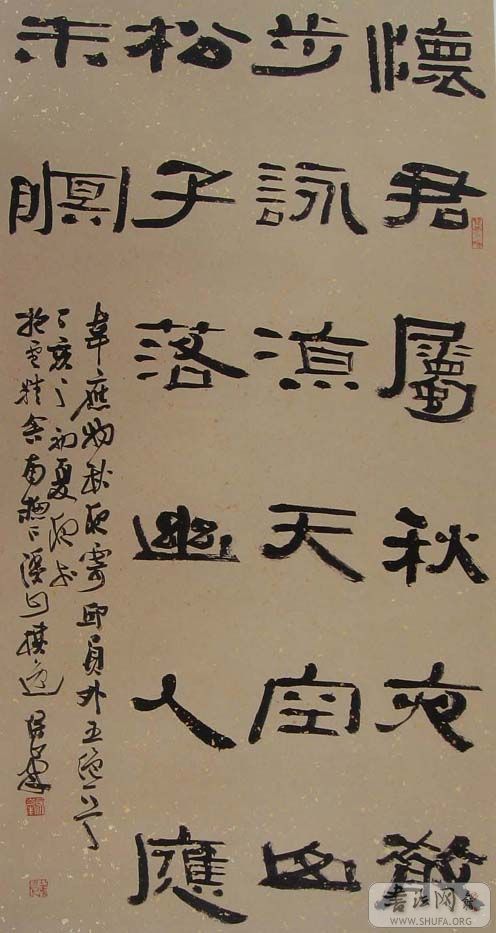 懷君屬秋夜散
步詠涼天空山
松子落幽人應
未瞑
韋應物秋夜寄邱員外五絕一首
丁亥之初夏夜於
抱雲精舍南窗下
书法网
WWW.SHUFA.ORG